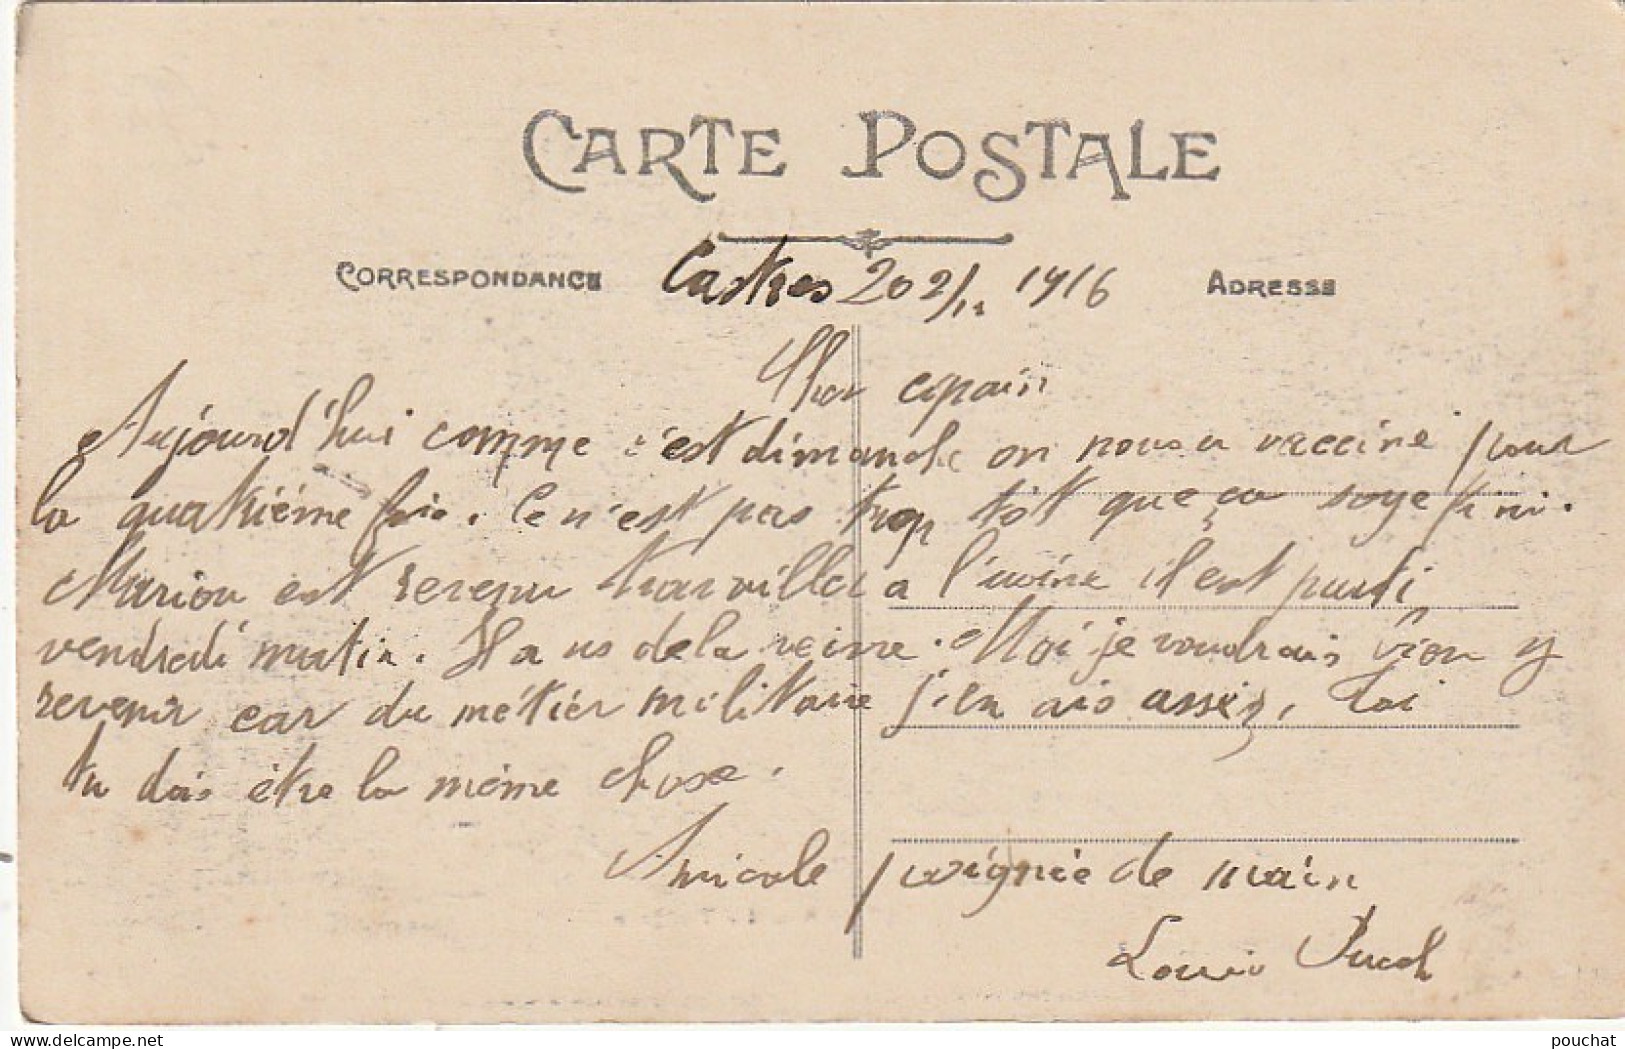 CARTE POSTALE
CORRESPONDANCE Castres 20 2/12 1916 ADRESSE
Cher copain
Aujourd'hui comme c'est dimanche on nous a vacciné pour
la quatriéme fois. Ce n'est pas trop tôt que ça soye fini.
Marion est revenu travailler a l'usine il est parti
vendredi matin. Il a us de la veine. Moi je voudrais bien y
revenir car du métier militaire j'en ais assez, toi
tu dois être la même chose.
Amicale poignée de main
Louis Puech
pouchat
delcampe.net